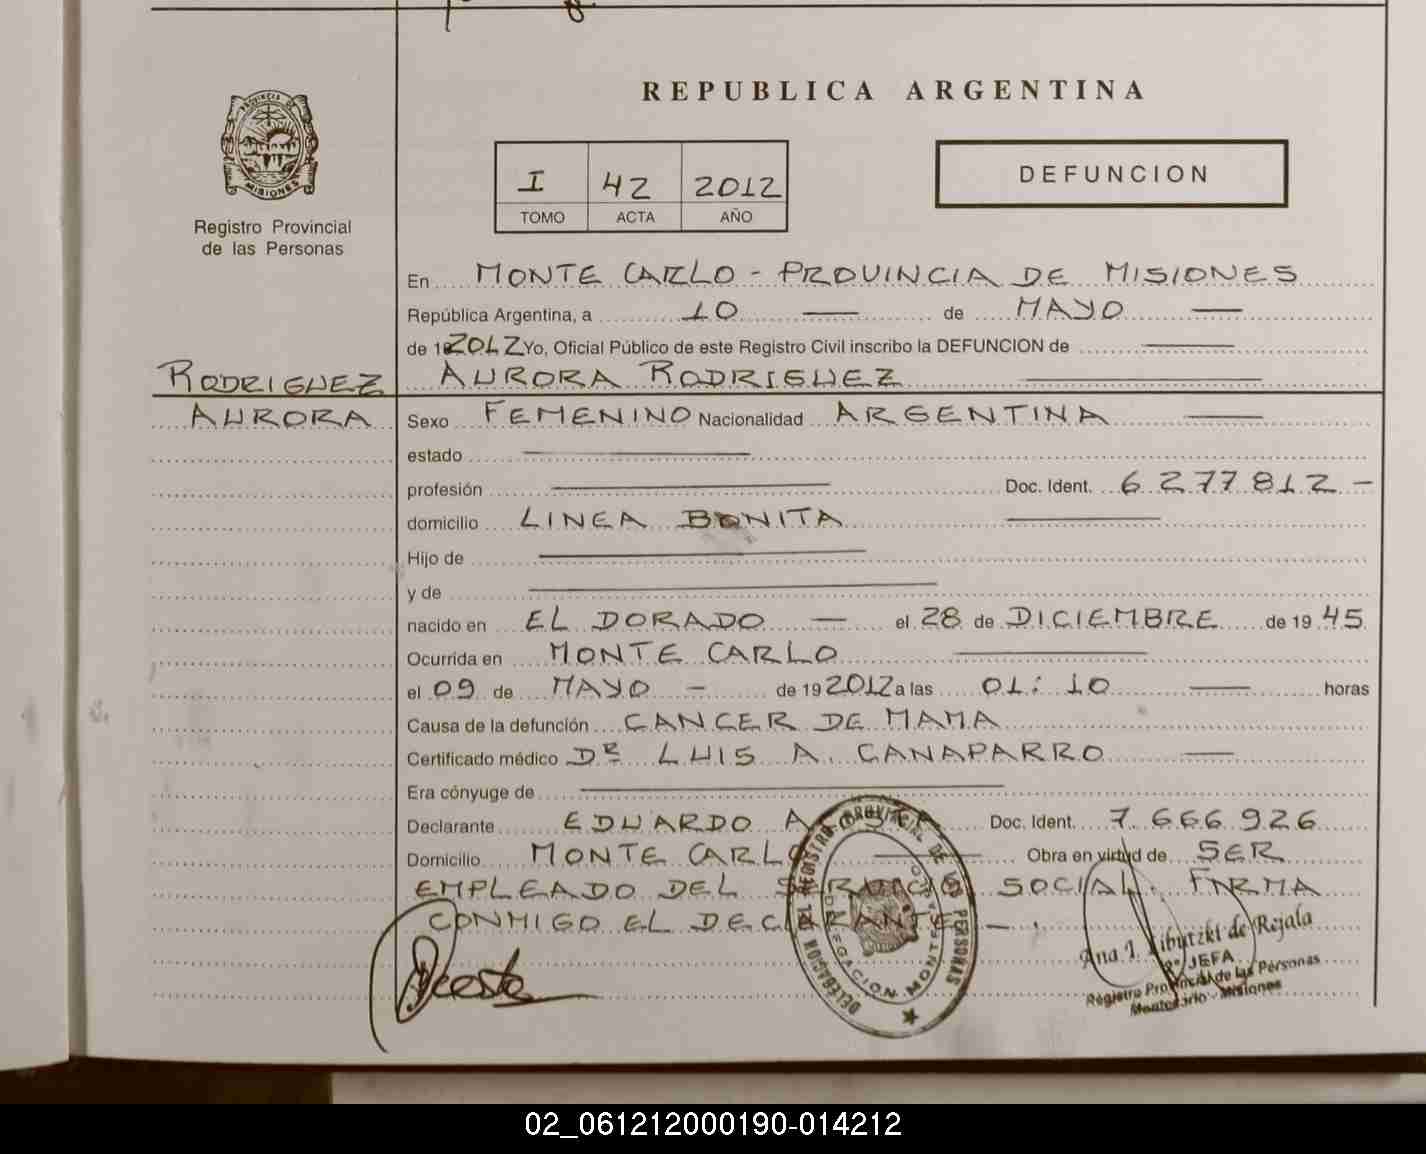 REPUBLICA ARGENTINA
PROVINCIA DE
MISIONES
Registro Provincial
de las Personas
I 42 2012
TOMO ACTA AÑO
DEFUNCION
En MONTE CARLO - PROVINCIA DE MISIONES
República Argentina, a 10 — de MAYO —
de 12012 Yo, Oficial Público de este Registro Civil inscribo la DEFUNCION de —
RODRIGUEZ AURORA RODRIGUEZ —
AURORA Sexo FEMENINO Nacionalidad ARGENTINA —
estado —
profesión — Doc. Ident. 6277812 -
domicilio LINEA BONITA —
Hijo de —
y de —
nacido en EL DORADO — el 28 de DICIEMBRE de 19 45
Ocurrida en MONTE CARLO —
el 09 de MAYO - de 19 2012 a las 01:10 — horas
Causa de la defunción CANCER DE MAMA
Certificado médico Dr LUIS A. CANAPARRO —
Era cónyuge de —
Declarante EDUARDO Doc. Ident. 7.666.926
Domicilio MONTE CARLO — Obra en virtud de SER
EMPLEADO DEL SERVICIO SOCIAL. FIRMA
CONMIGO EL DECLARANTE — .
DELEGACION DEL REGISTRO PROVINCIAL DE LAS PERSONAS
DELEGACION MONTECARLO
Ana I. de Rejala
JEFA
Registro Provincial de las Personas
Montecarlo - Misiones
02_061212000190-014212